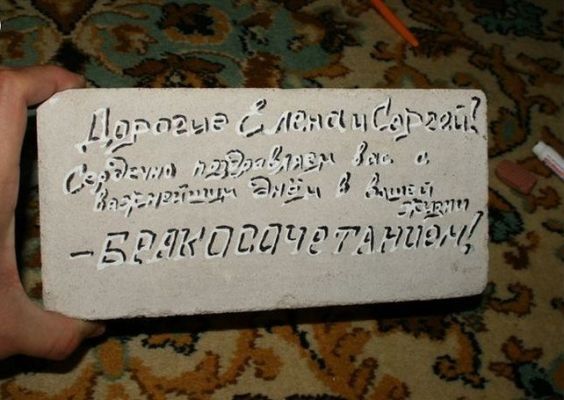 Дорогие Елена и Сергей!
Сердечно поздравляем вас с
важнейшим днём в вашей
жизни
- БРАКОСОЧЕТАНИЕМ!